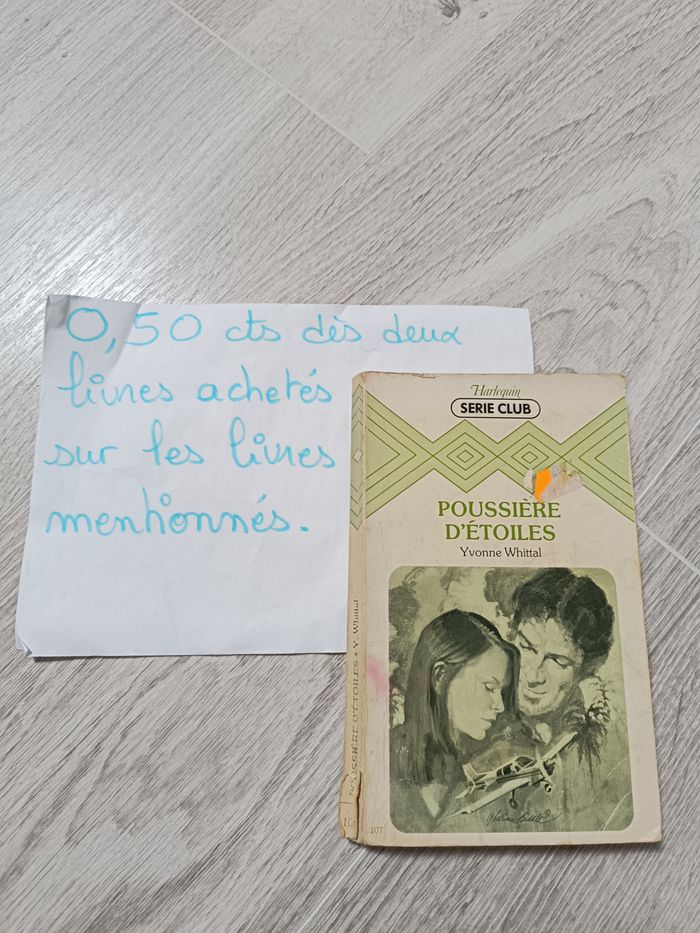 0,50 cts dès deux
livres achetés
sur les livres
mentionnés.
Harlequin
SERIE CLUB
POUSSIÈRE
D'ÉTOILES
Yvonne Whittal
POUSSIÈRE D'ÉTOILES • Y. Whittal
107